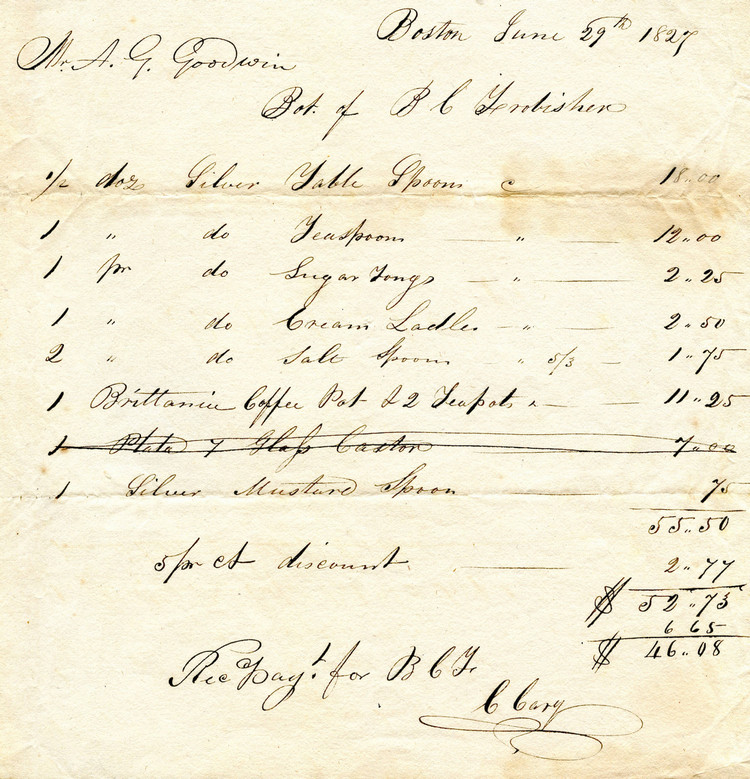 Boston June 29th 1827
Mr. A. G. Goodwin
Bot. of B C Frobisher
1/2 doz Silver Table Spoons c 18.00
1 " do Teaspoons — " — 12.00
1 pr do Sugar Tongs — " — 2.25
1 " do Cream Ladles — " — 2.50
2 " do Salt Spoons " 5/3 — 1.75
1 Brittania Coffee Pot & 2 Teapots " — 11.25
1 Plated & Glass Castor 7.00
1 Silver Mustard Spoon — 75
55.50
5 pr ct discount — 2.77
$ 52.73
6 65
$ 46.08
Rec Payt. for B C F.
C Cary